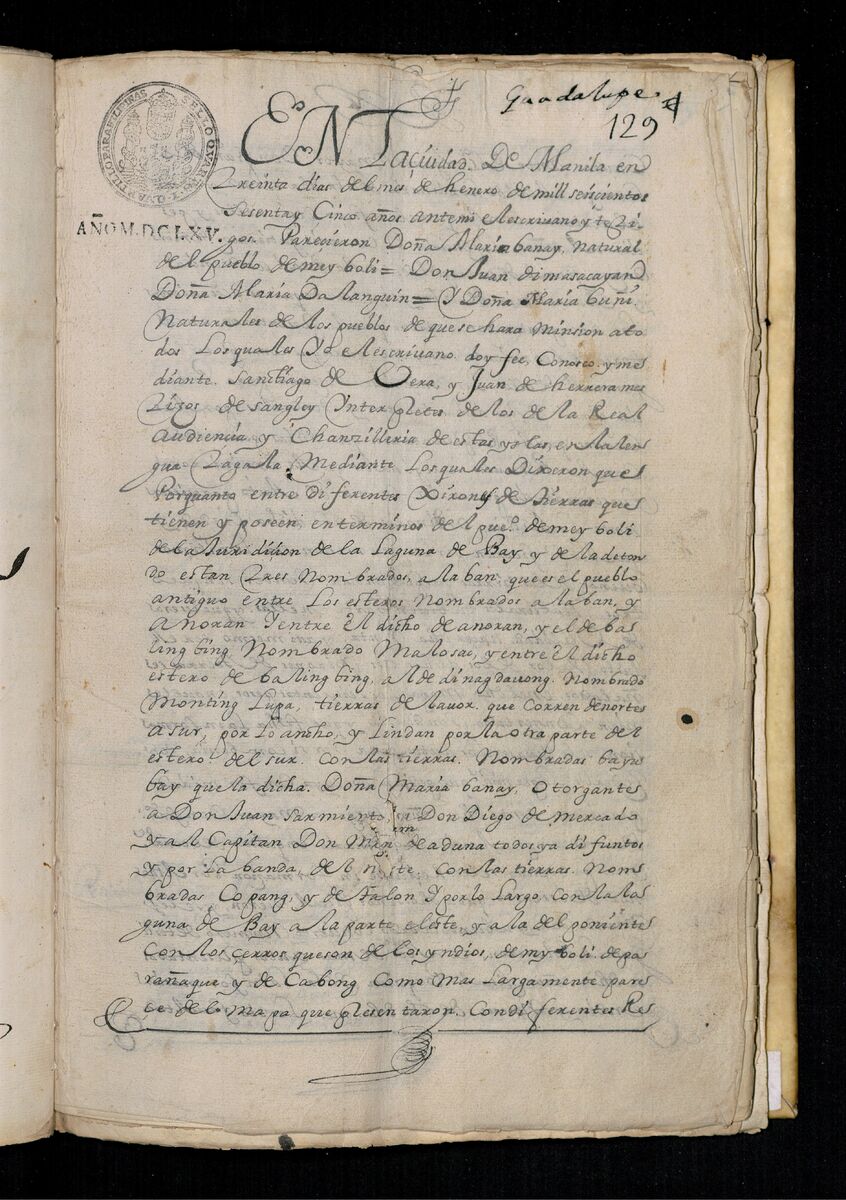 Guadalupe
129
SELLO QVARTO VN QVARTILLO PARA FILIPINAS
AÑO M.DC.LXV.
EN Laciudad. De Manila en
treinta dias del mes de henero de mill seiscientos
Sesenta y Cinco años antemi elescrivano y testi-
gos. Parecieron Doña Maria banay, natural
del pueblo de mey boli = Don Juan dimasacayan
Doña Maria Dalanguin = Y Doña Maria
Naturales de los pueblos de que se hara minsion ato
dos Los quales Yo elescrivano doy fee, Conosco. y me
diante. Santiago de Vera, y Juan de herrera mes
tizos de sangley Ynterpretes de los de la Real
audiencia y Chanzilleria de estas yslas, en la len
gua tagala, Mediante Los quales Dixeron que
Porquanto entre diferentes Xirones de tierras que
tienen y poseen, en terminos del pueo. de mey boli
de la Juridicion de la Laguna de Bay y de la de ton
do estan tres nombrados, alaban que es el pueblo
antiguo entre Los esteros nombrados alaban, y
añoran Y entre el dicho de anoran, y el de ba
ling bing Nombrado Malosac, y entre el dicho
estero de baling bing, al de dinagdauong. Nombrado
Monting Lupa, tierras de lavor que Corren de norte
a sur, por lo ancho, y Lindan por la otra parte del
estero del sur. Con las tierras. Nombradas bayu
bay que la dicha. Doña Maria banay, Otorgante
a Don Juan Sarmiento, a Don Diego de mercado
y al Capitan Don Min de aduna todos ya difuntos
y por La banda, del Con las tierras. Nom
bradas Copang, y de talon Y por lo Largo, con la la
guna de Bay a la parte eleste, y a la del poniente
Con los cerros que son de los yndios, de myboli. de pa
rañaque y de Cabong Como mas Larga mente pare
ce de lo mapa que presentaron. Con diferentes Re